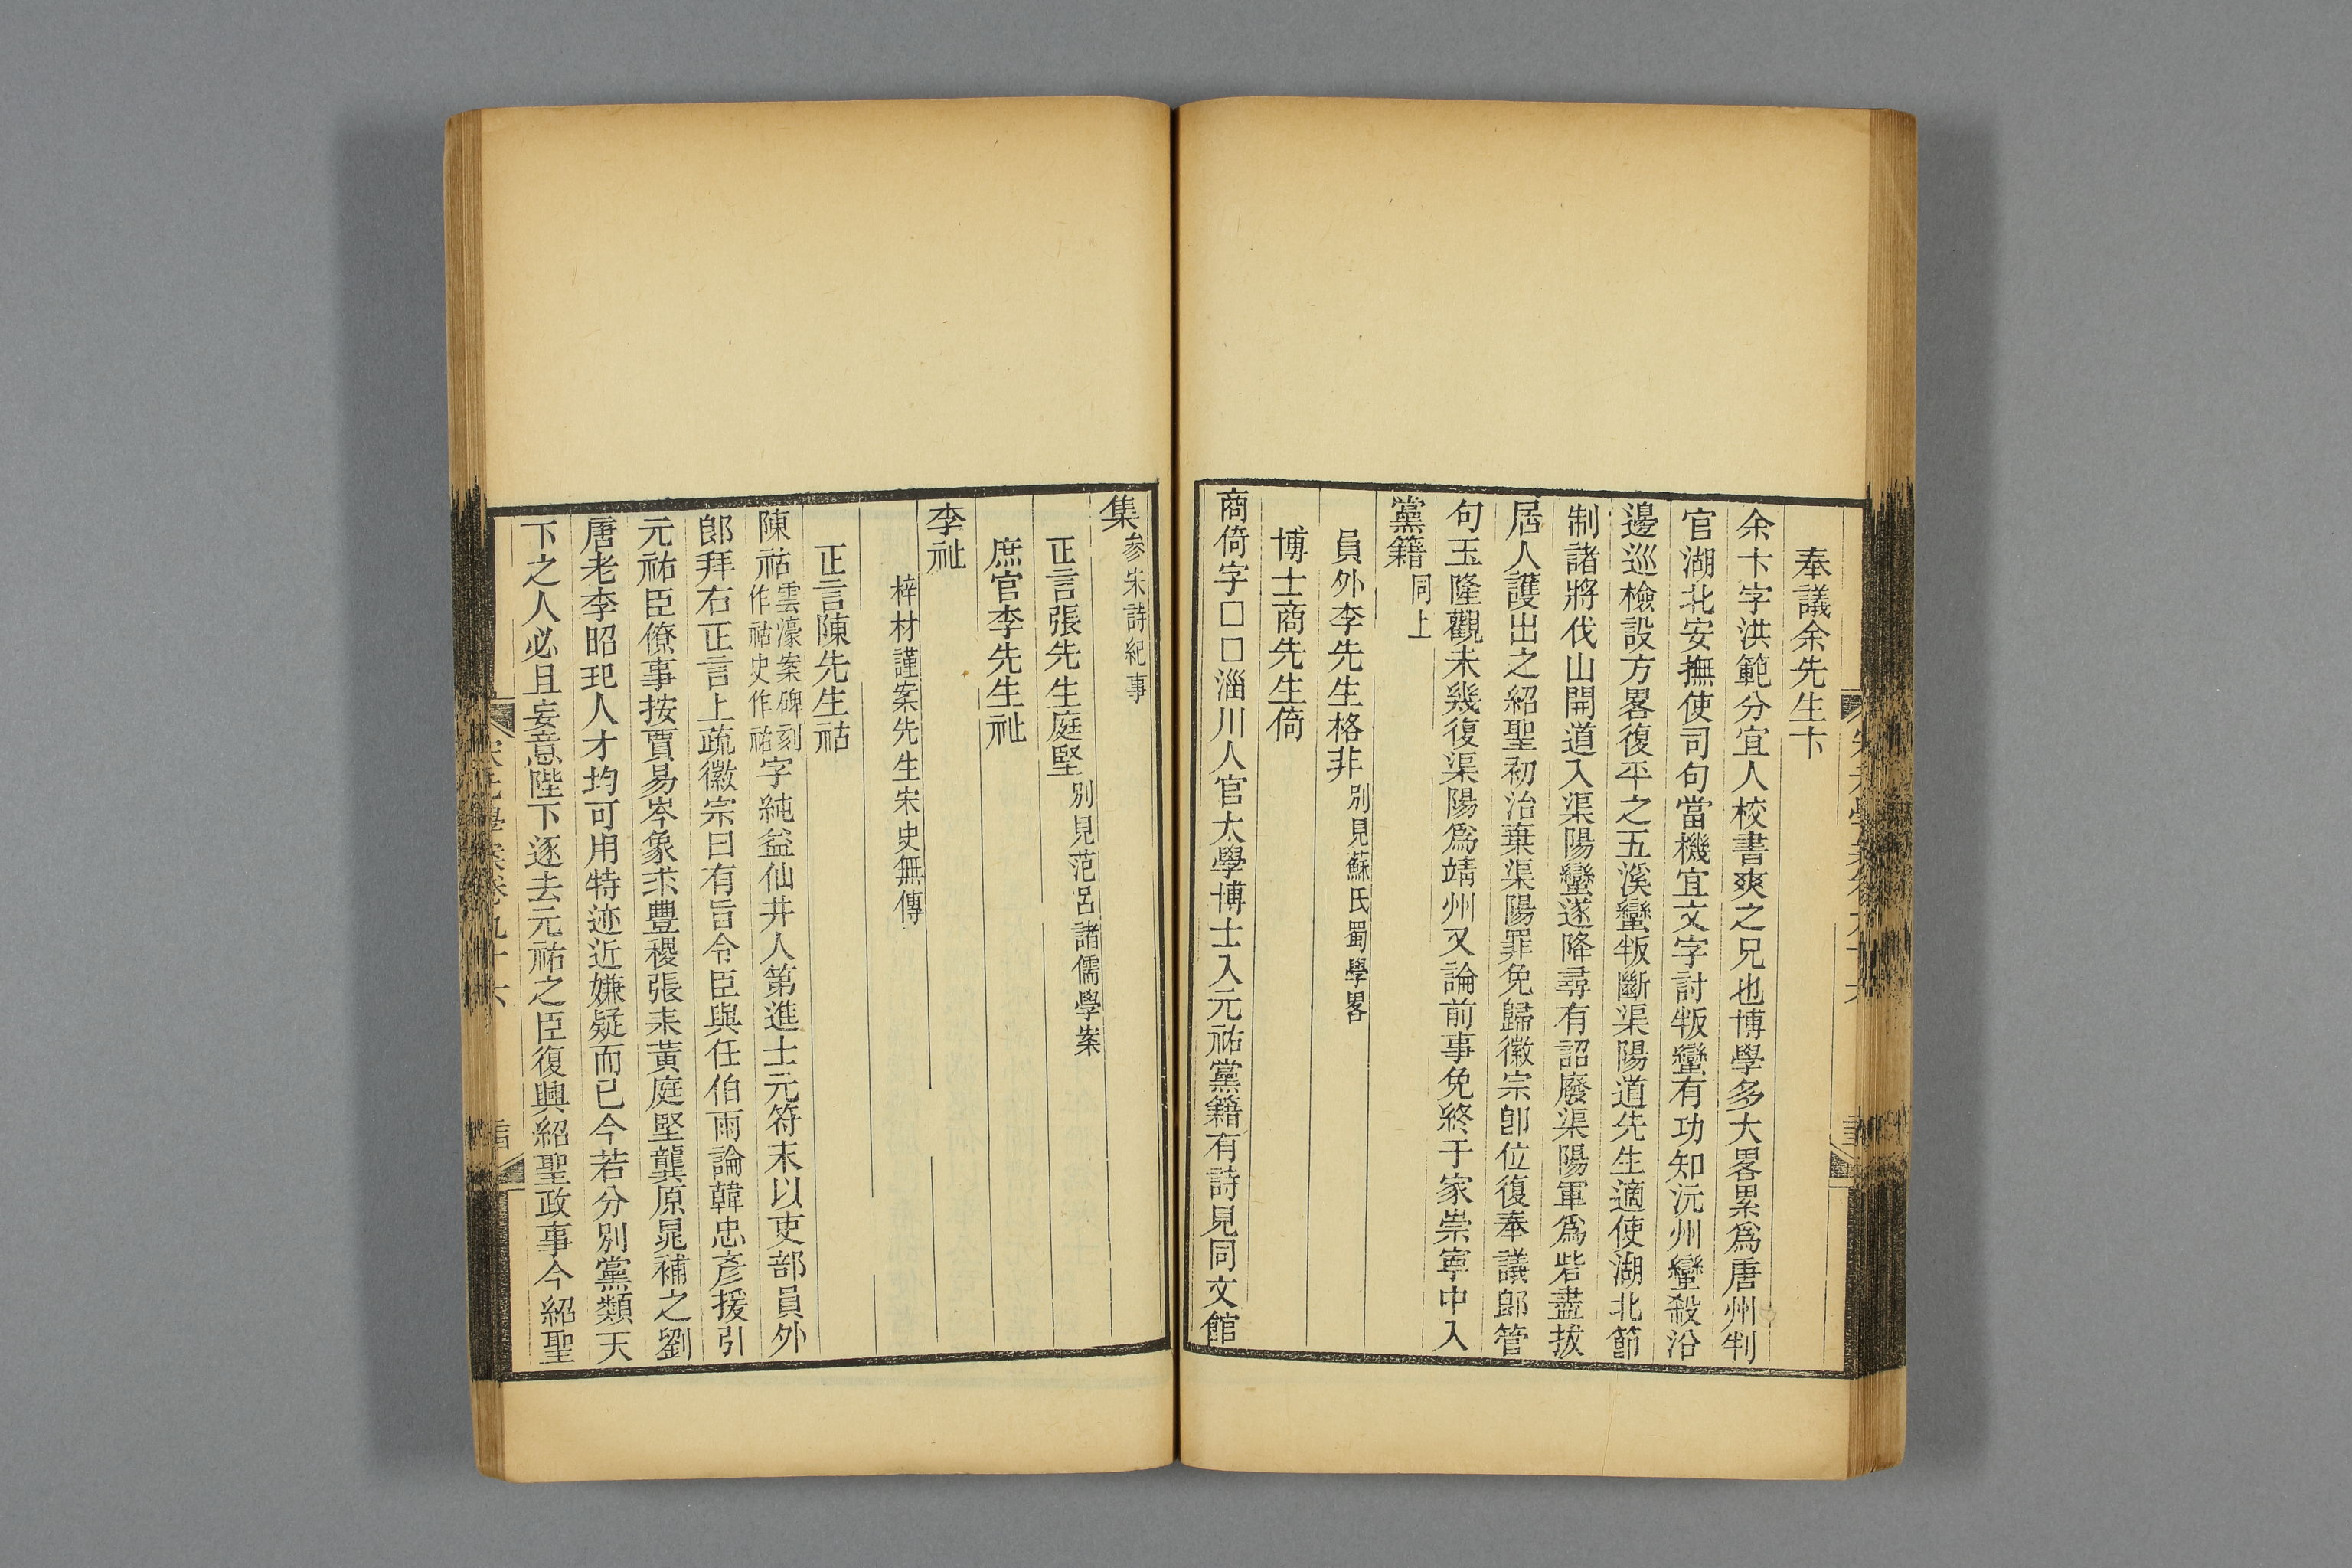 奉議余先生卞
余卞字洪範分宜人校書爽之兄也博學多大畧累爲唐州判
官湖北安撫使司句當機宜文字討叛蠻有功知沅州蠻殺沿
邊巡檢設方畧復平之五溪蠻叛斷渠陽道先生適使湖北節
制諸將伐山開道入渠陽蠻遂降尋有詔廢渠陽軍爲砦盡拔
居人護出之紹聖初治棄渠陽罪免歸徽宗卽位復奉議郞管
句玉隆觀未幾復渠陽爲靖州又論前事免終于家崇寧中入
黨籍同上
員外李先生格非別見蘇氏蜀學畧
博士商先生倚
商倚字□□淄川人官太學博士入元祐黨籍有詩見同文館
集參宋詩紀事
正言張先生庭堅別見范呂諸儒學案
庶官李先生祉
李祉
梓材謹案先生宋史無傳
正言陳先生祜
陳祜雲濠案碑刻作祜史作祐字純益仙井人第進士元符末以吏部員外
郞拜右正言上疏徽宗曰有旨令臣與任伯雨論韓忠彥援引
元祐臣僚事按賈易岑象求豐稷張耒黃庭堅龔原晁補之劉
唐老李昭玘人才均可用特迹近嫌疑而已今若分別黨類天
下之人必且妄意陛下逐去元祐之臣復興紹聖政事今紹聖
宋元學案卷九十六